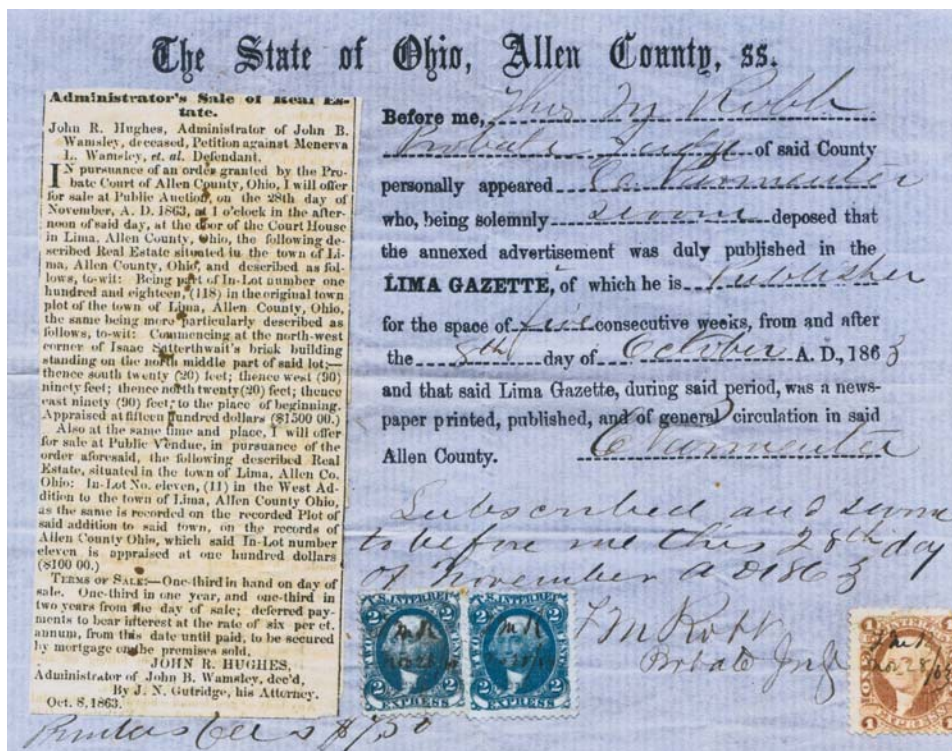 The State of Ohio, Allen County, ss.
Administrator's Sale of Real Es-
tate.
John R. Hughes, Administrator of John B.
Wamsley, deceased, Petition against Menerva
L. Wamsley, et. al. Defendant.
IN pursuance of an order granted by the Pro-
bate Court of Allen County, Ohio, I will offer
for sale at Public Auction, on the 28th day of
November, A. D. 1863, at 1 o'clock in the after-
noon of said day, at the door of the Court House
in Lima, Allen County, Ohio, the following de-
scribed Real Estate situated in the town of Li-
ma, Allen County, Ohio, and described as fol-
lows, to-wit: Being part of In-Lot number one
hundred and eighteen, (118) in the original town
plot of the town of Lima, Allen County, Ohio,
the same being more particularly described as
follows, to-wit: Commencing at the north-west
corner of Isaac Satterthwait's brick building
standing on the north middle part of said lot;—
thence south twenty (20) feet; thence west (90)
ninety feet; thence north twenty (20) feet; thence
east ninety (90) feet; to the place of beginning.
Appraised at fifteen hundred dollars ($1500 00.)
Also at the same time and place, I will offer
for sale at Public Vendue, in pursuance of the
order aforesaid, the following described Real
Estate, situated in the town of Lima, Allen Co,
Ohio: In-Lot No. eleven, (11) in the West Ad-
dition to the town of Lima, Allen County Ohio,
as the same is recorded on the recorded Plot of
said addition to said town, on the records of
Allen County Ohio, which said In-Lot number
eleven is appraised at one hundred dollars
($100 00.)
TERMS OF SALE:—One-third in hand on day of
sale. One-third in one year, and one-third in
two years from the day of sale; deferred pay-
ments to bear interest at the rate of six per ct.
annum, from this date until paid, to be secured
by mortgage on the premises sold.
JOHN R. HUGHES,
Administrator of John B. Wamsley, dec'd,
By J. N. Gutridge, his Attorney.
Oct. 8, 1863.
Before me, Thos M Robb
Probate Judge of said County
personally appeared C Parmenter
who, being solemnly sworn deposed that
the annexed advertisement was duly published in the
LIMA GAZETTE, of which he is Publisher
for the space of five consecutive weeks, from and after
the 8th day of October A. D., 1863
and that said Lima Gazette, during said period, was a news-
paper printed, published, and of general circulation in said
Allen County. C Parmenter
Subscribed and sworn
to before me this 28th day
of November A D 1863
T M Robb
Probate Judge
Printers fees $7.50
U.S. INTER. REV.
2 2
EXPRESS
U.S. INTER. REV.
2 2
EXPRESS
T M R
Nov 28/63
1 1
EXPRESS